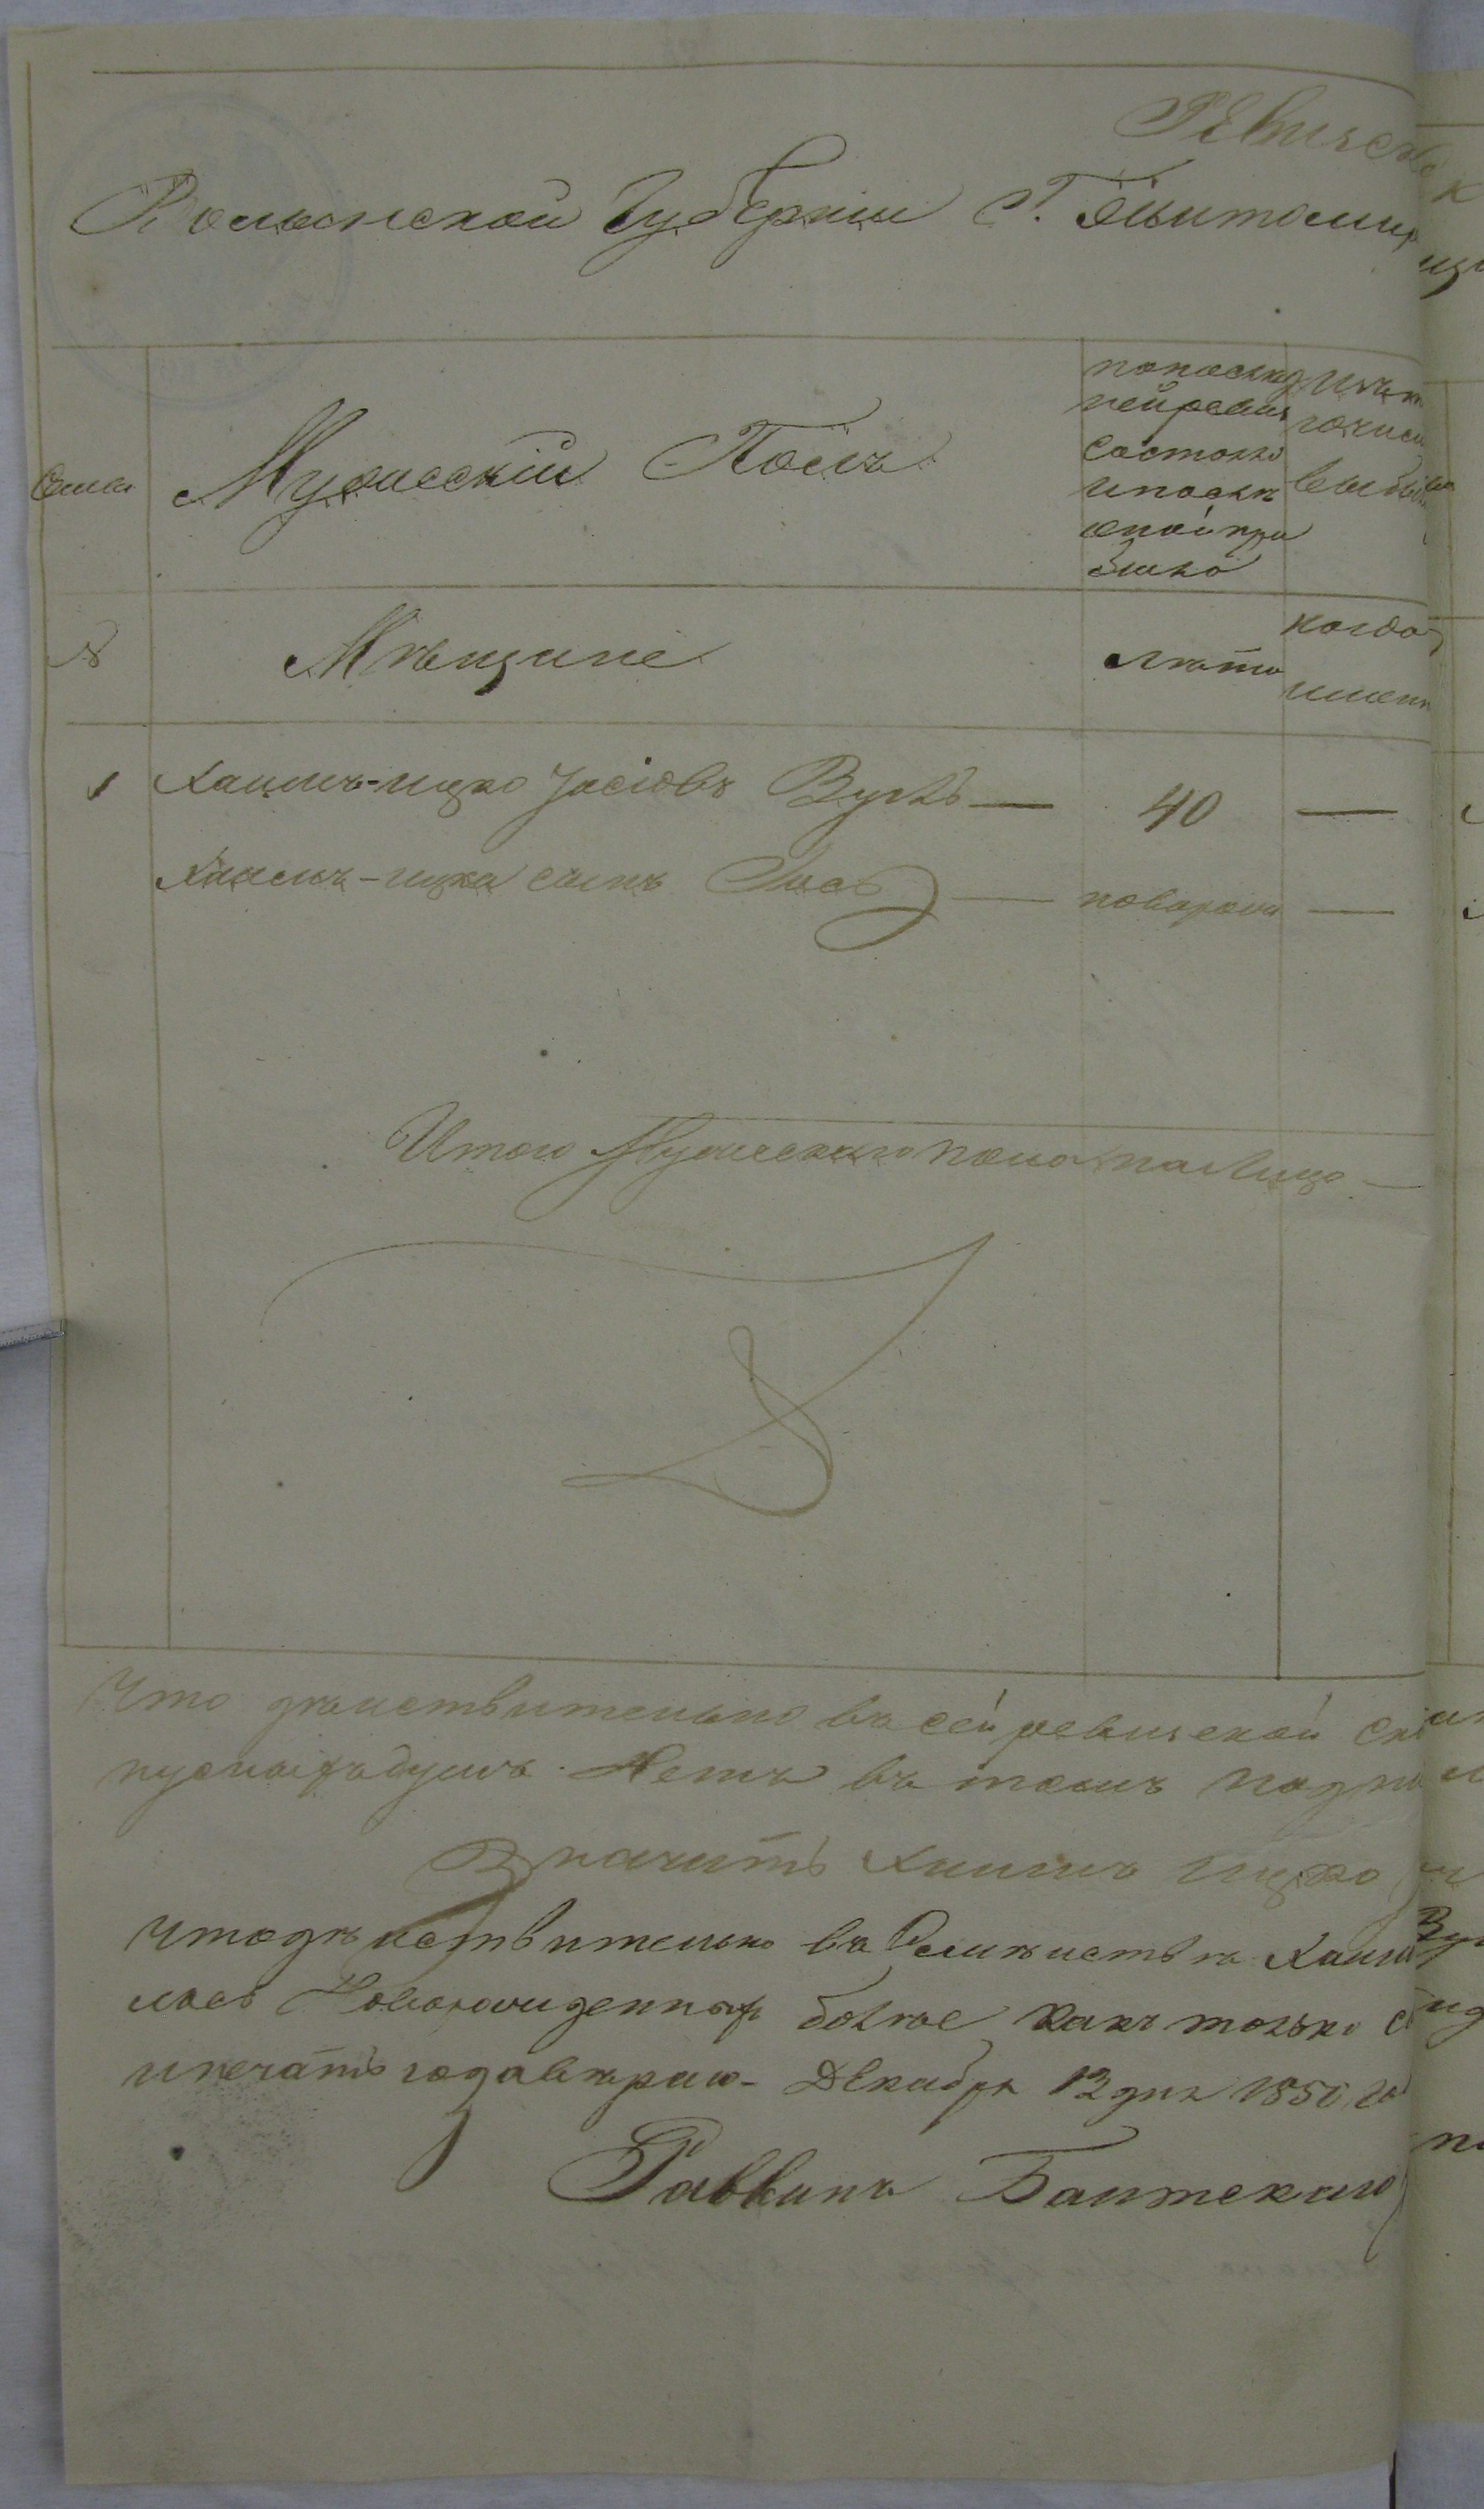 Ревиск
Волынской Губернии Г. Житомир
Семьи
Мужескій Полъ
по послед
ней ревизи
состояло
и после
оной при
было
Изъ то
го числа
выбыло
№
Мѣщане
лѣта
когда
именн
1 Хаимъ-ицко Іосіовъ Вугль — 40 —
Хаимъ-ицка сынъ Іось — новорожд —
Итого Мужескаго пола на лицо —
Что действительно въ сей ревизской ск
пускныхъ душъ Нетъ въ томъ подпи
Значитъ Хаимъ Ицко
Что действительно въ Семействѣ Хаим
лось Новорожденных более какъ только с
и печать года въ краю - Декабря 13 дня 1850 го
Раввинъ Баитскаго